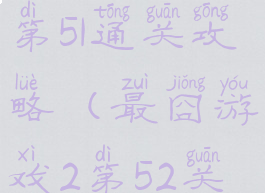 dì tōng guān gōng
第51通关攻
lüè zuì jiǒng yóu
略(最囧游
xì dì guān
戏2第52关